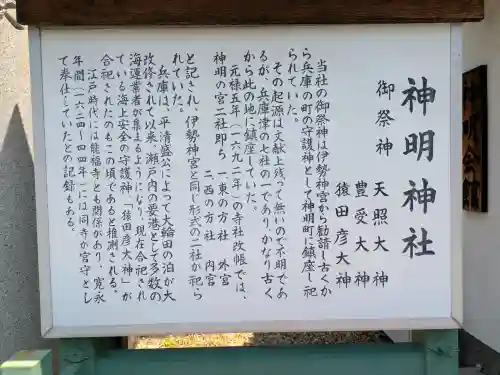 神明神社
御祭神 天照大神
豊受大神
猿田彦大神
当社の御祭神は伊勢神宮から勧請し古くか
ら兵庫の町の守護神として神明町に鎮座し祀
られていた。
その起源は文献上残って無いので不明であ
るが、兵庫津の七社の一であり、かなり古く
から此の地に鎮座していた。
元禄五年(一六九二年)の寺社改帳では、
神明の宮二社即ち 一、東の方社 外宮
二、西の方社 内宮
と記され、伊勢神宮と同じ形式の二社が祀ら
れていた。
兵庫は、平清盛公によって大輪田の泊が大
改修されて以来、瀬戸内の要港として多数の
海運業者が集まるようになり、現在、合祀され
ている海上安全の守護神、「猿田彦大神」が
合祀されたのもこの頃であると推測される。
江戸時代には能福寺とも関係があり、寛永
年間(一六二四〜四四年)には同寺が宮守とし
て奉仕していたとの記録もある。